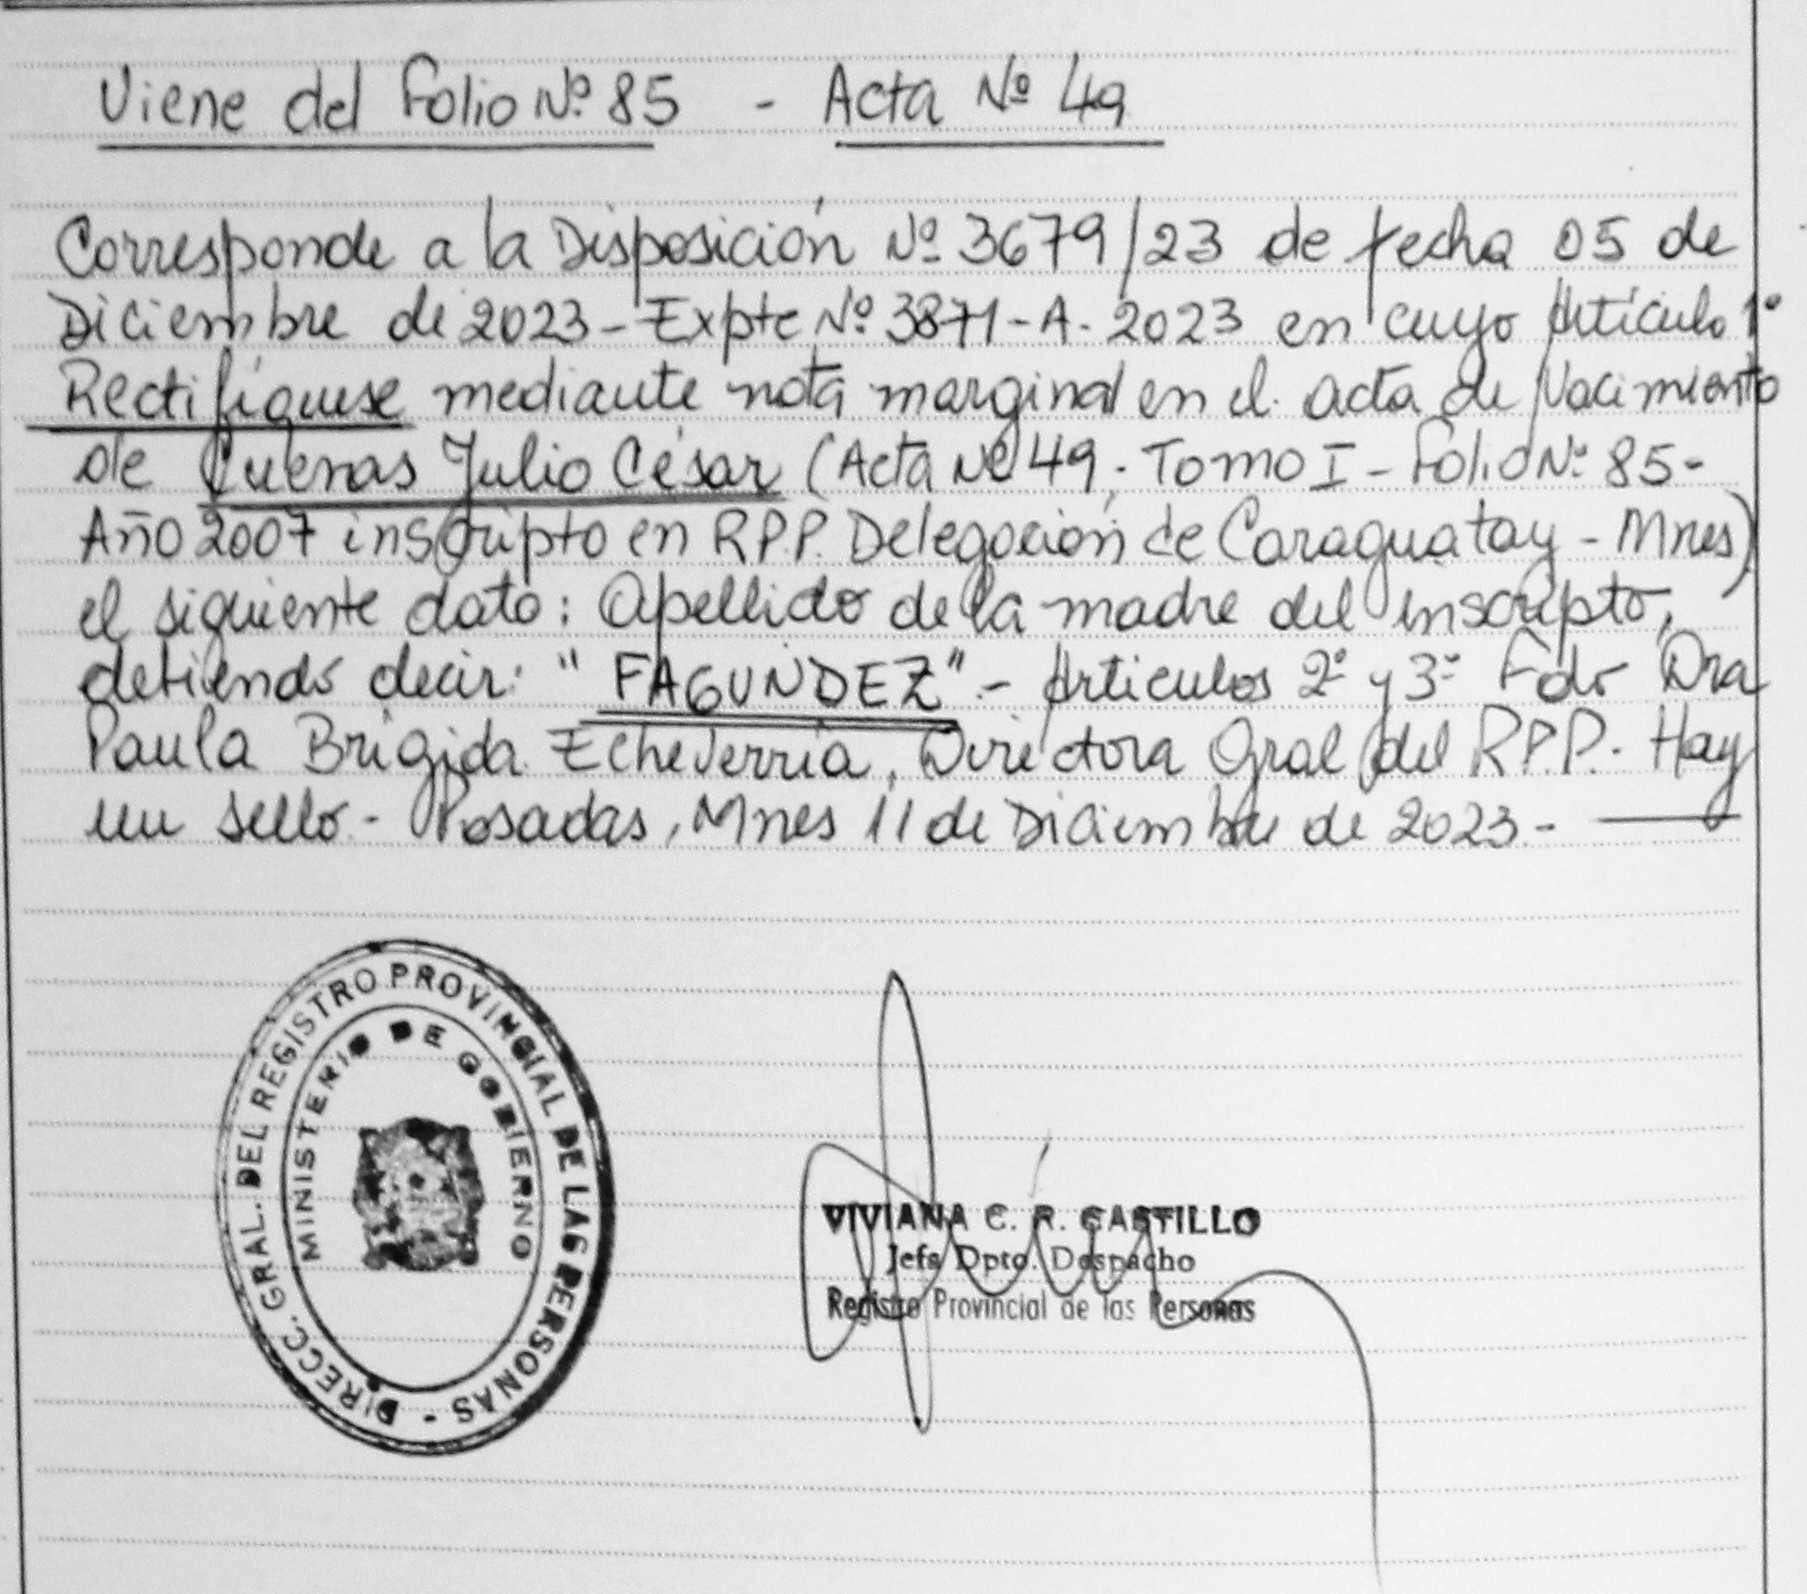 Viene del Folio Nº 85 - Acta Nº 49
Corresponde a la Disposición Nº 3679/23 de fecha 05 de
Diciembre de 2023 - Expte Nº 3871-A-2023 en cuyo Artículo 1º
Rectifíquese mediante nota marginal en el acta de Nacimiento
de Cuenas Julio César (Acta Nº 49 - Tomo I - Folio Nº 85 -
Año 2007 inscripto en RPP. Delegación de Caraguatay - Mnes)
el siguiente dato: Apellido de la madre del inscripto,
debiendo decir: "FAGUNDEZ" - Artículos 2º y 3º Fdo Dra
Paula Brígida Echeverria, Directora Gral del R.P.P. - Hay
un sello. - Posadas, Mnes 11 de Diciembre de 2023 -
DIRECC. GRAL. DEL REGISTRO PROVINCIAL DE LAS PERSONAS -
MINISTERIO DE GOBIERNO
VIVIANA C. R. CASTILLO
Jefa Dpto. Despacho
Registro Provincial de las Personas